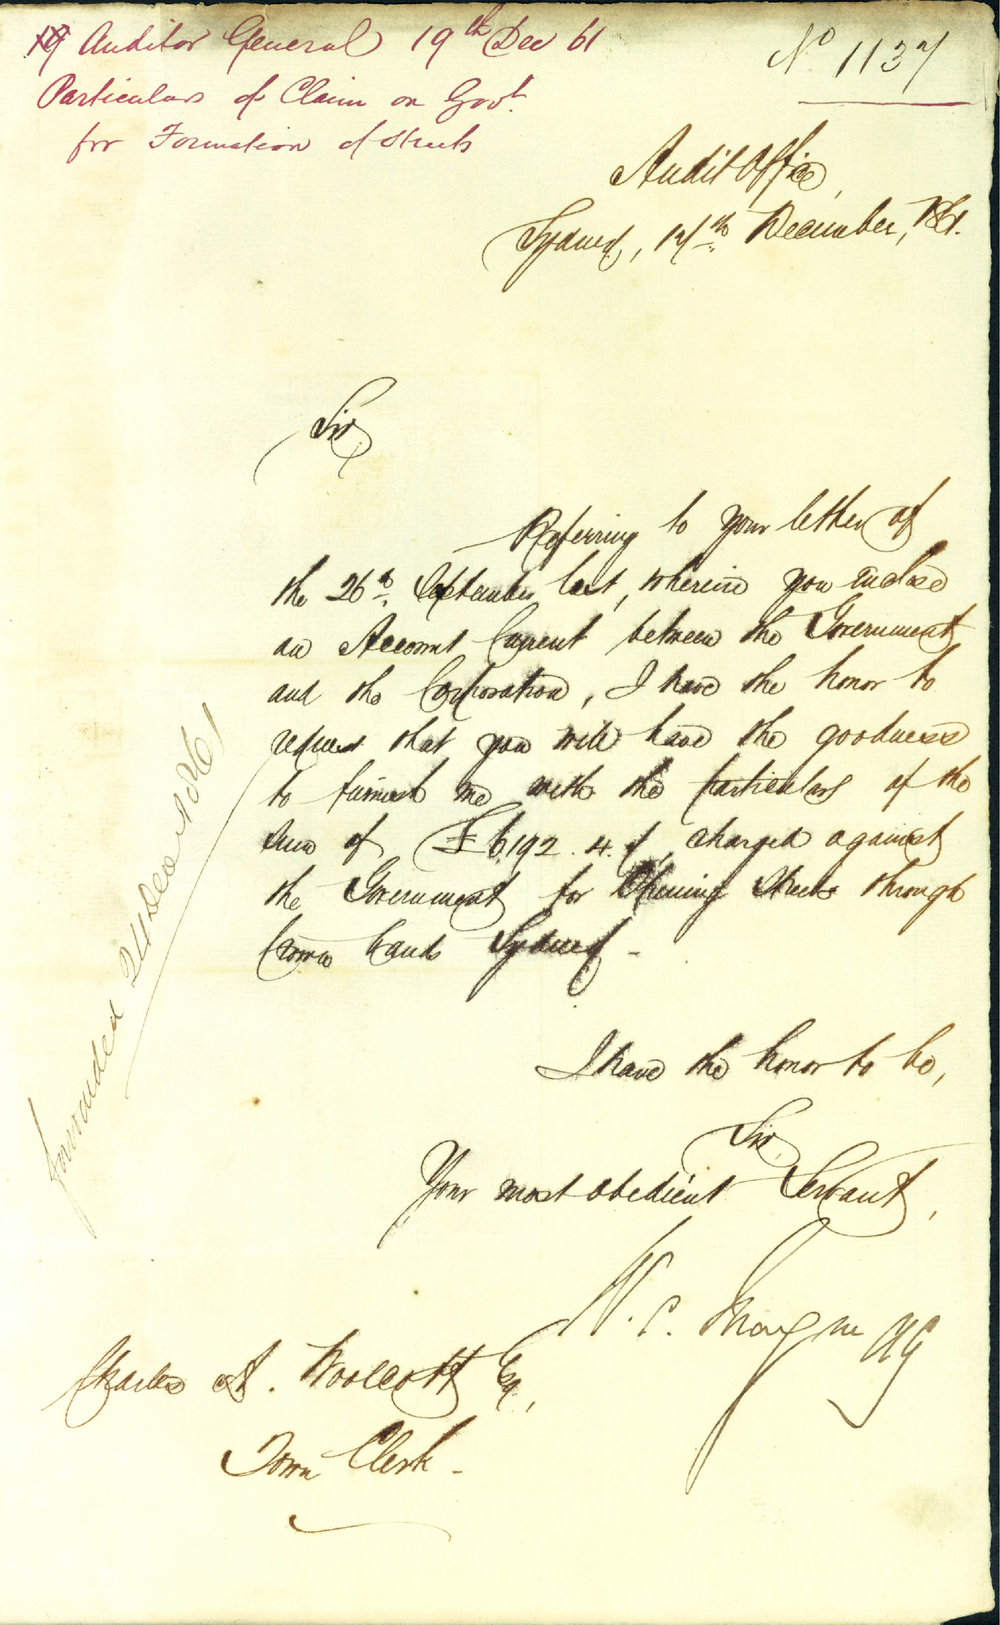 Auditor General 19th Dec 61
Particulars of Claim on Govt.
for Formation of Streets
No 1137
Audit Office,
Sydney, December, 1861.
Sir,
Referring to your letter of
the 26th. September last, wherein you enclose
an Account Current between the Government
and the Corporation, I have the honor to
request that you will have the goodness
to furnish me with the particulars of the
sum of £6,192. 4. charged against
the Government for Opening Streets through
Crown Lands Sydney -
I have the honor to be,
Sir,
Your most obedient Servant,
W. C. AG
Charles H. Woolcott Esq,
Town Clerk -
forwarded 24 Dec 1861